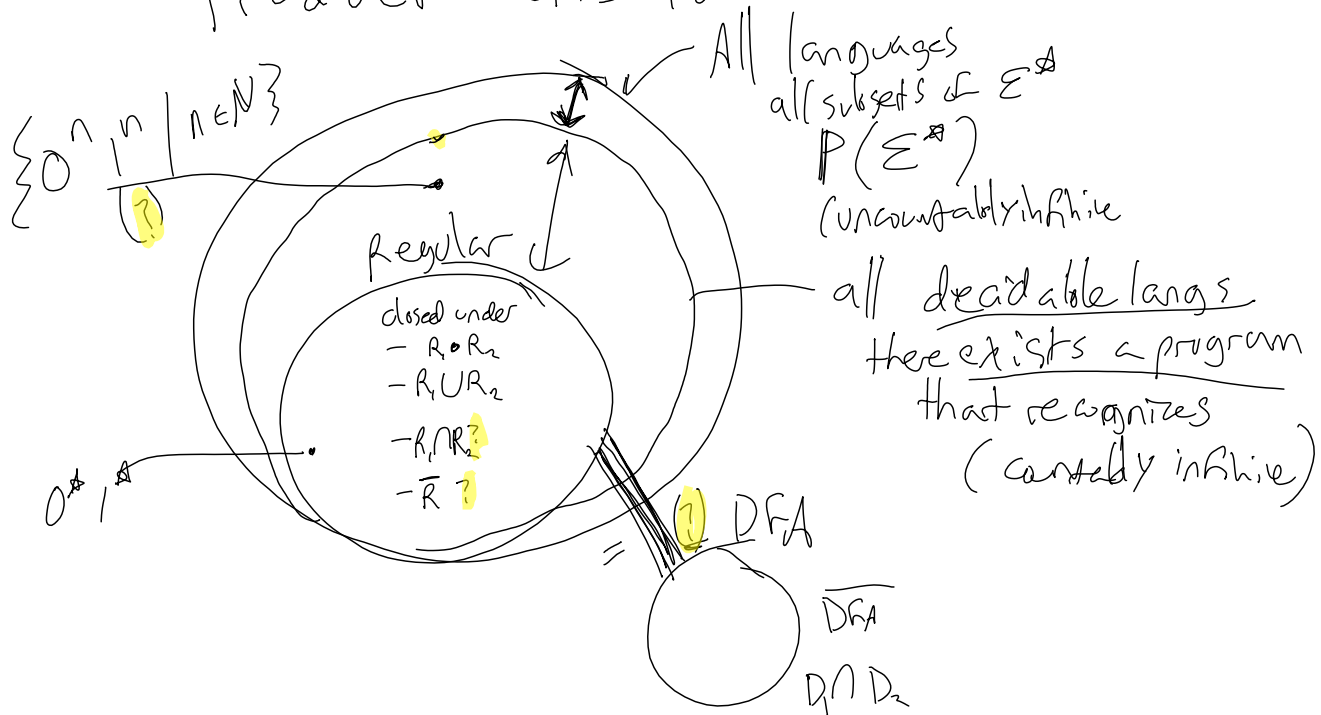 {0ⁿ1ⁿ | n ∈ N}
(?)
All languages
all subsets of Σ*
P(Σ*)
(uncountably infinite
Regular
closed under
- R₁ • R₂
- R₁ ∪ R₂
- R₁ ∩ R₂ ?
- R̅ ?
0*1*
all decidable langs
there exists a program
that recognizes
(countably infinite)
=
(?)
DFA
D̅F̅A̅
D₁ ∩ D₂